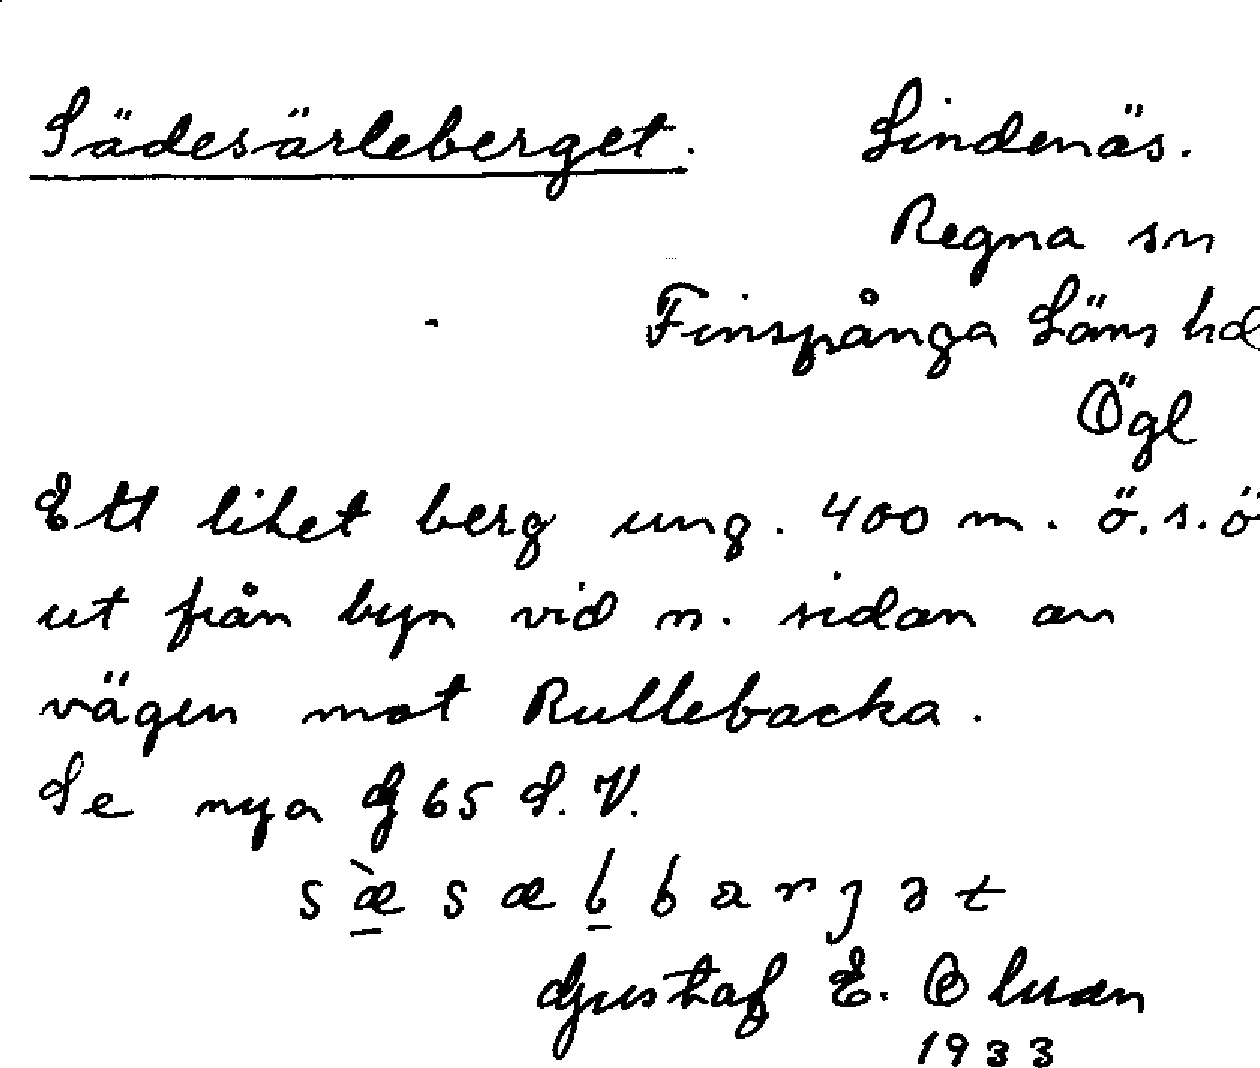 Sädesärleberget. Lindenäs.
Regna sn
Finspånga Läns hd
Ögl
Ett litet berg ung. 400 m. ö.s.ö
ut från byn vid n. sidan av
vägen mot Rullebacka.
Se nya G 65 S. V.
Gustaf E. Olsson
1933